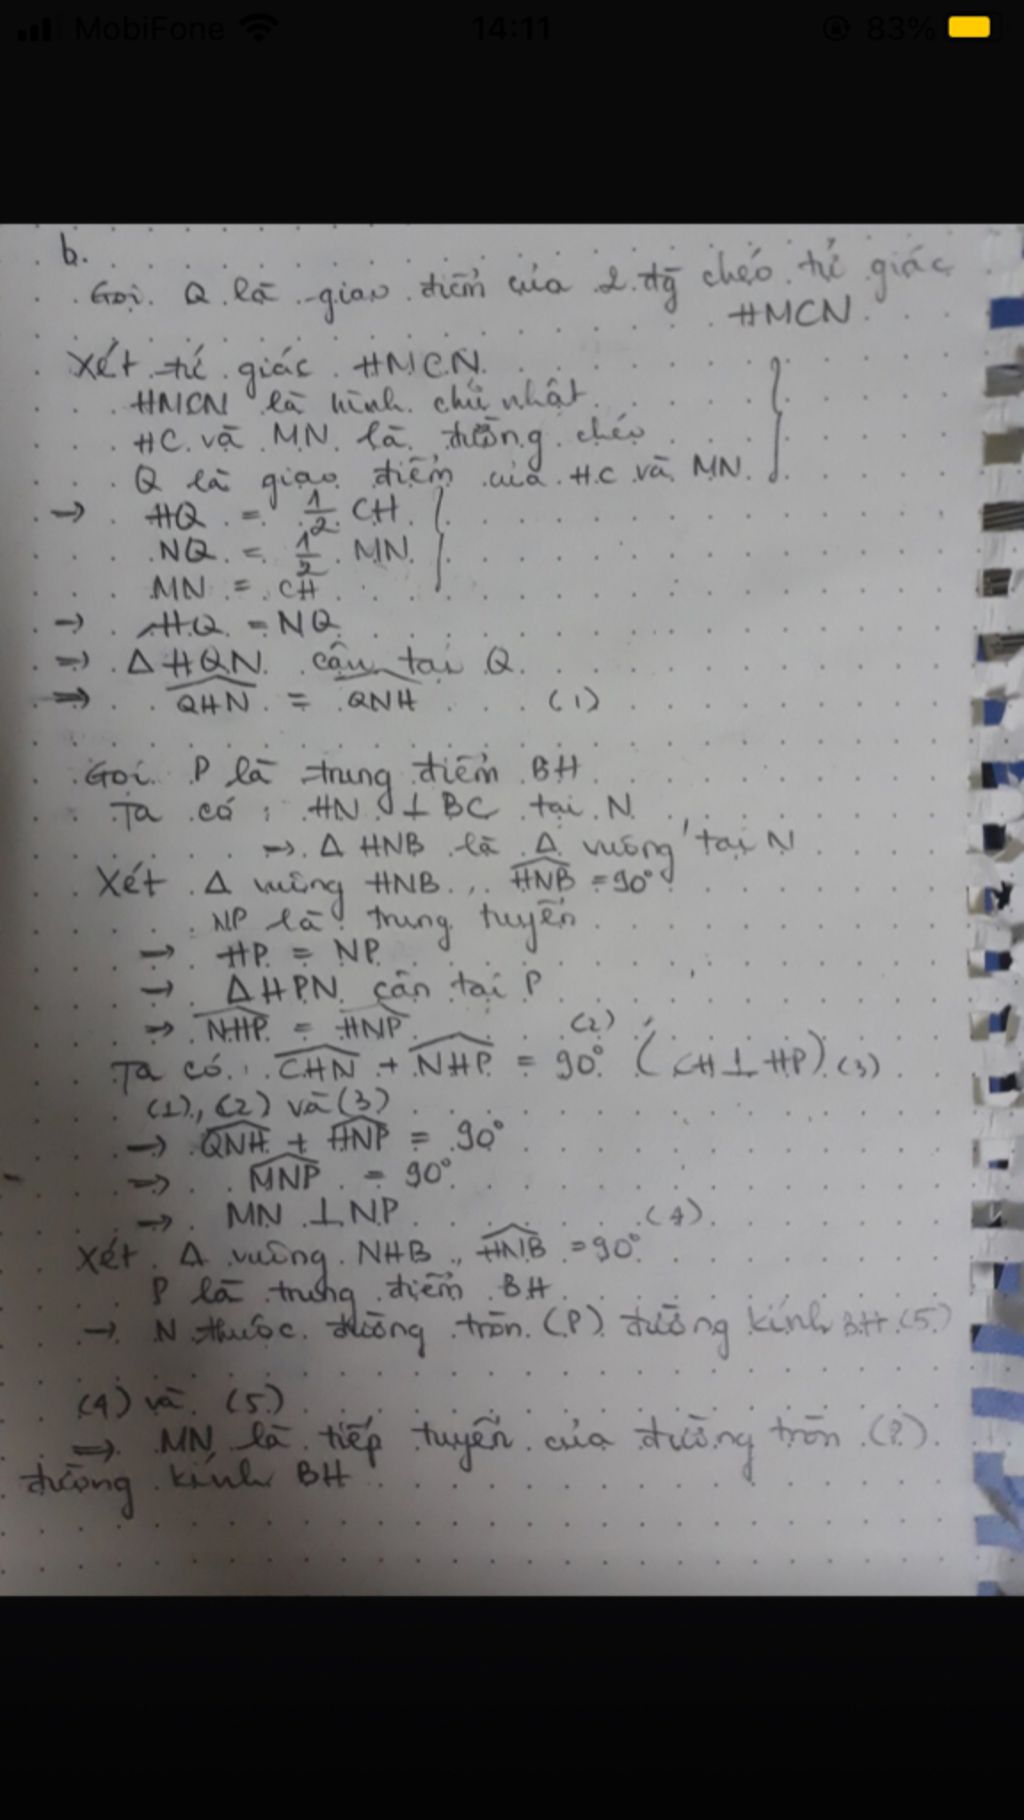 MobiFone 14:11 83%
b.
Gọi Q là giao điểm của 2 đg chéo tứ giác
HMCN
Xét tứ giác HMCN
HMCN là hình chữ nhật
HC và MN là đường chéo
Q là giao điểm của HC và MN
→ HQ = 1/2 CH
NQ = 1/2 MN
MN = CH
→ HQ = NQ
→ Δ HQN cân tại Q
→ \widehat{QHN} = \widehat{QNH} (1)
Gọi P là trung điểm BH
Ta có: HN ⊥ BC tại N
→ Δ HNB là Δ vuông tại N
Xét Δ vuông HNB, \widehat{HNB} = 90°
NP là trung tuyến
→ HP = NP
→ ΔHPN cân tại P
→ \widehat{NHP} = \widehat{HNP} (2)
Ta có: \widehat{CHN} + \widehat{NHP} = 90° (CH⊥HP) (3)
(1), (2) và (3)
→ \widehat{QNH} + \widehat{HNP} = 90°
→ \widehat{MNP} = 90°
→ MN ⊥ NP (4)
Xét Δ vuông NHB, \widehat{HNB} = 90°
P là trung điểm BH
→ N thuộc đường tròn (P) đường kính BH (5)
(4) và (5)
⇒ MN là tiếp tuyến của đường tròn (P)
đường kính BH